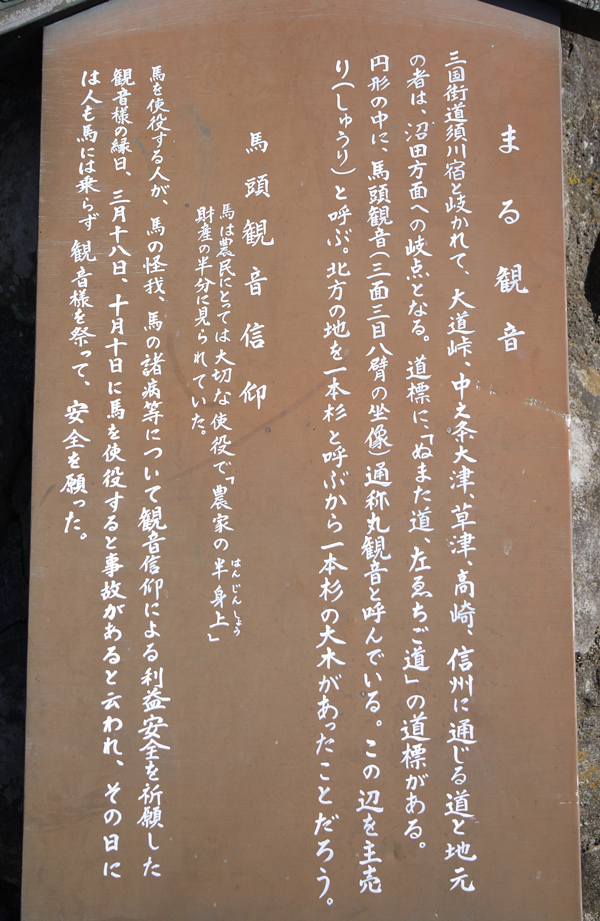 まる観音
三国街道須川宿と岐かれて、大道峠、中之条大津、草津、高崎、信州に通じる道と地元
の者は、沼田方面への岐点となる。道標に、「ぬまた道、左ゑちご道」の道標がある。
円形の中に、馬頭観音(三面三目八臂の坐像)通称丸観音と呼んでいる。この辺を主売
り(しゅうり)と呼ぶ。北方の地を一本杉と呼ぶから一本杉の大木があったことだろう。
馬頭観音信仰
馬は農民にとっては大切な使役で「農家の半身上」
はんじんしょう
財産の半分に見られていた。
馬を使役する人が、馬の怪我、馬の諸病等について観音信仰による利益安全を祈願した
観音様の縁日、三月十八日、十月十日に馬を使役すると事故があると云われ、その日に
は人も馬には乗らず観音様を祭って、安全を願った。